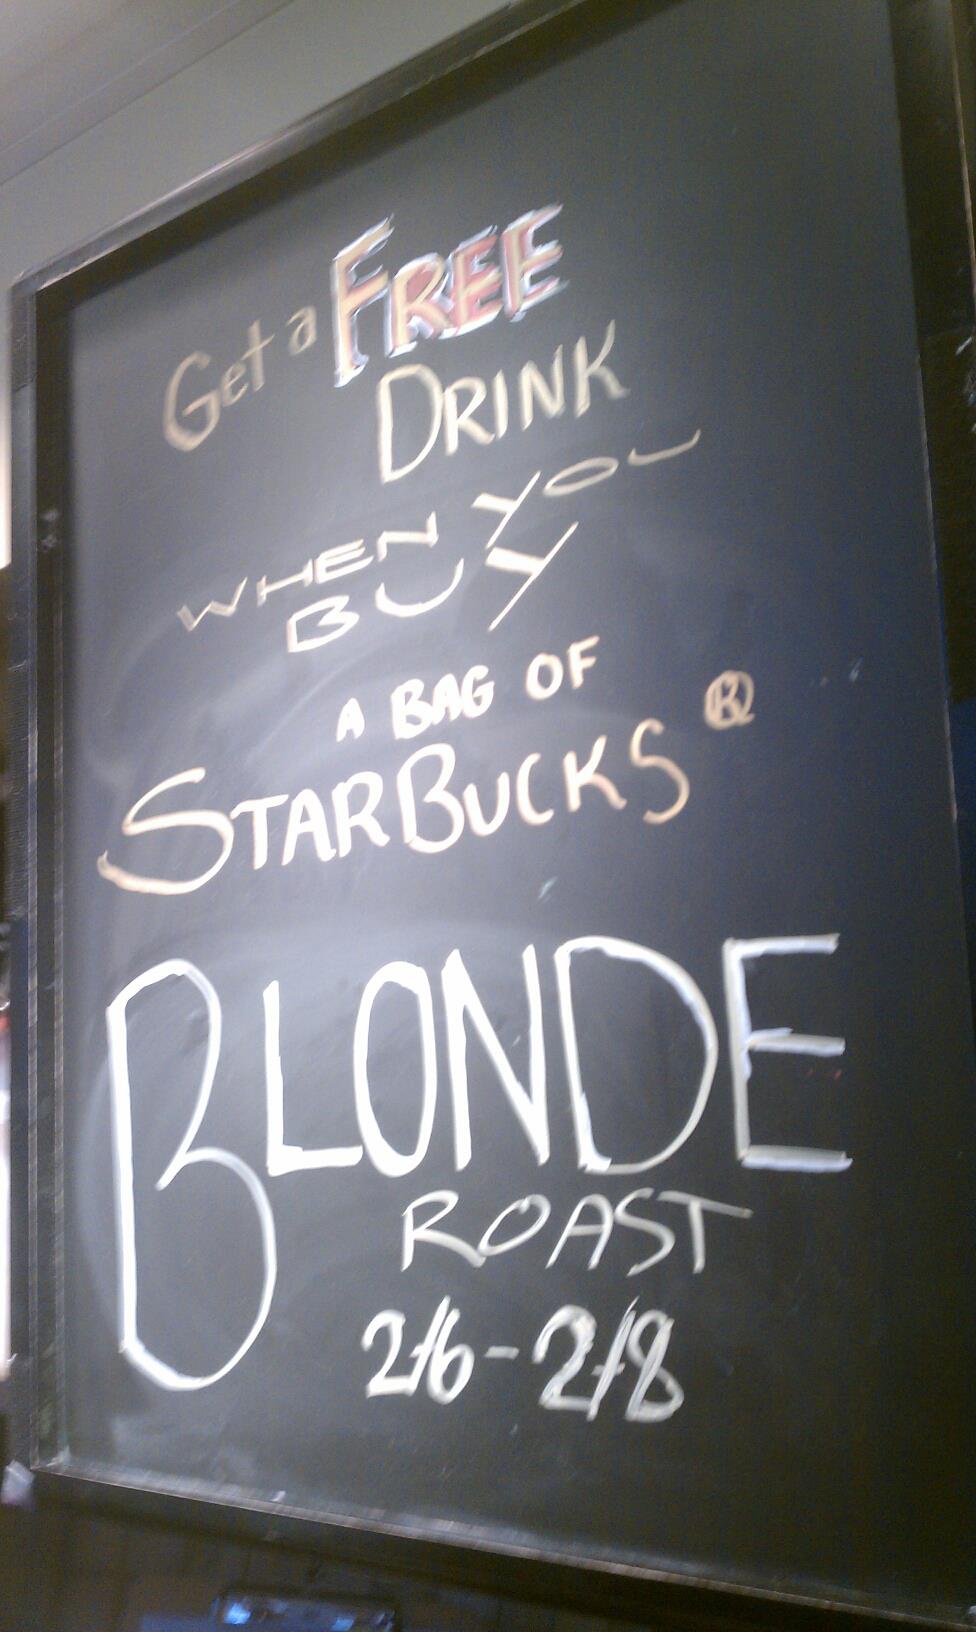 Get a FREE
DRINK
WHEN YOU
BUY
A BAG OF
STARBUCKS ®
BLONDE
ROAST
2/6-2/8